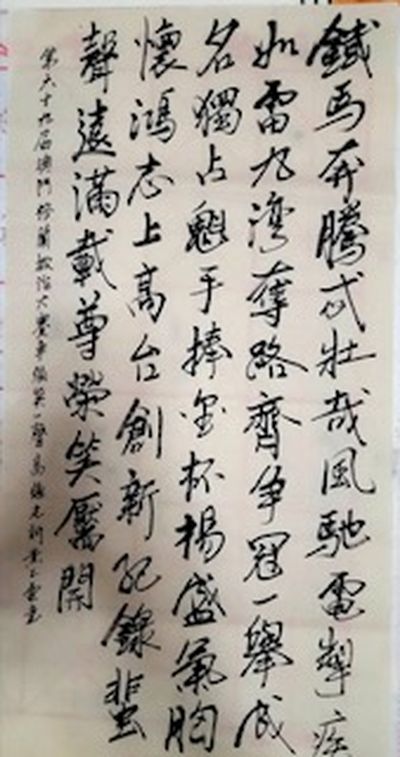 鐵馬奔騰忒壯哉風馳電掣疾
如雷九灣奪路齊爭冠一舉成
名獨占魁手捧金杯揚盛氣胸
懷鴻志上高台創新紀錄蜚
聲遠滿載尊榮笑靨開
第六十九屆澳門格蘭披治大賽車